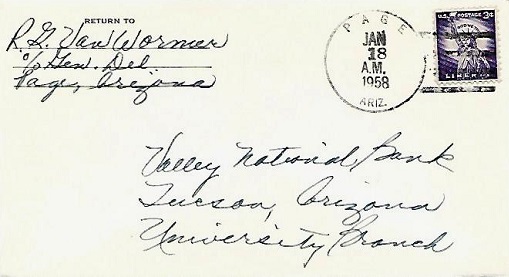 RETURN TO
R. G. Van Wormer
c/o Gen. Del.
Page, Arizona
PAGE
JAN
18
A.M.
1958
ARIZ.
U.S. POSTAGE 3¢
LIBERTY
Valley National Bank
Tucson, Arizona
University Branch